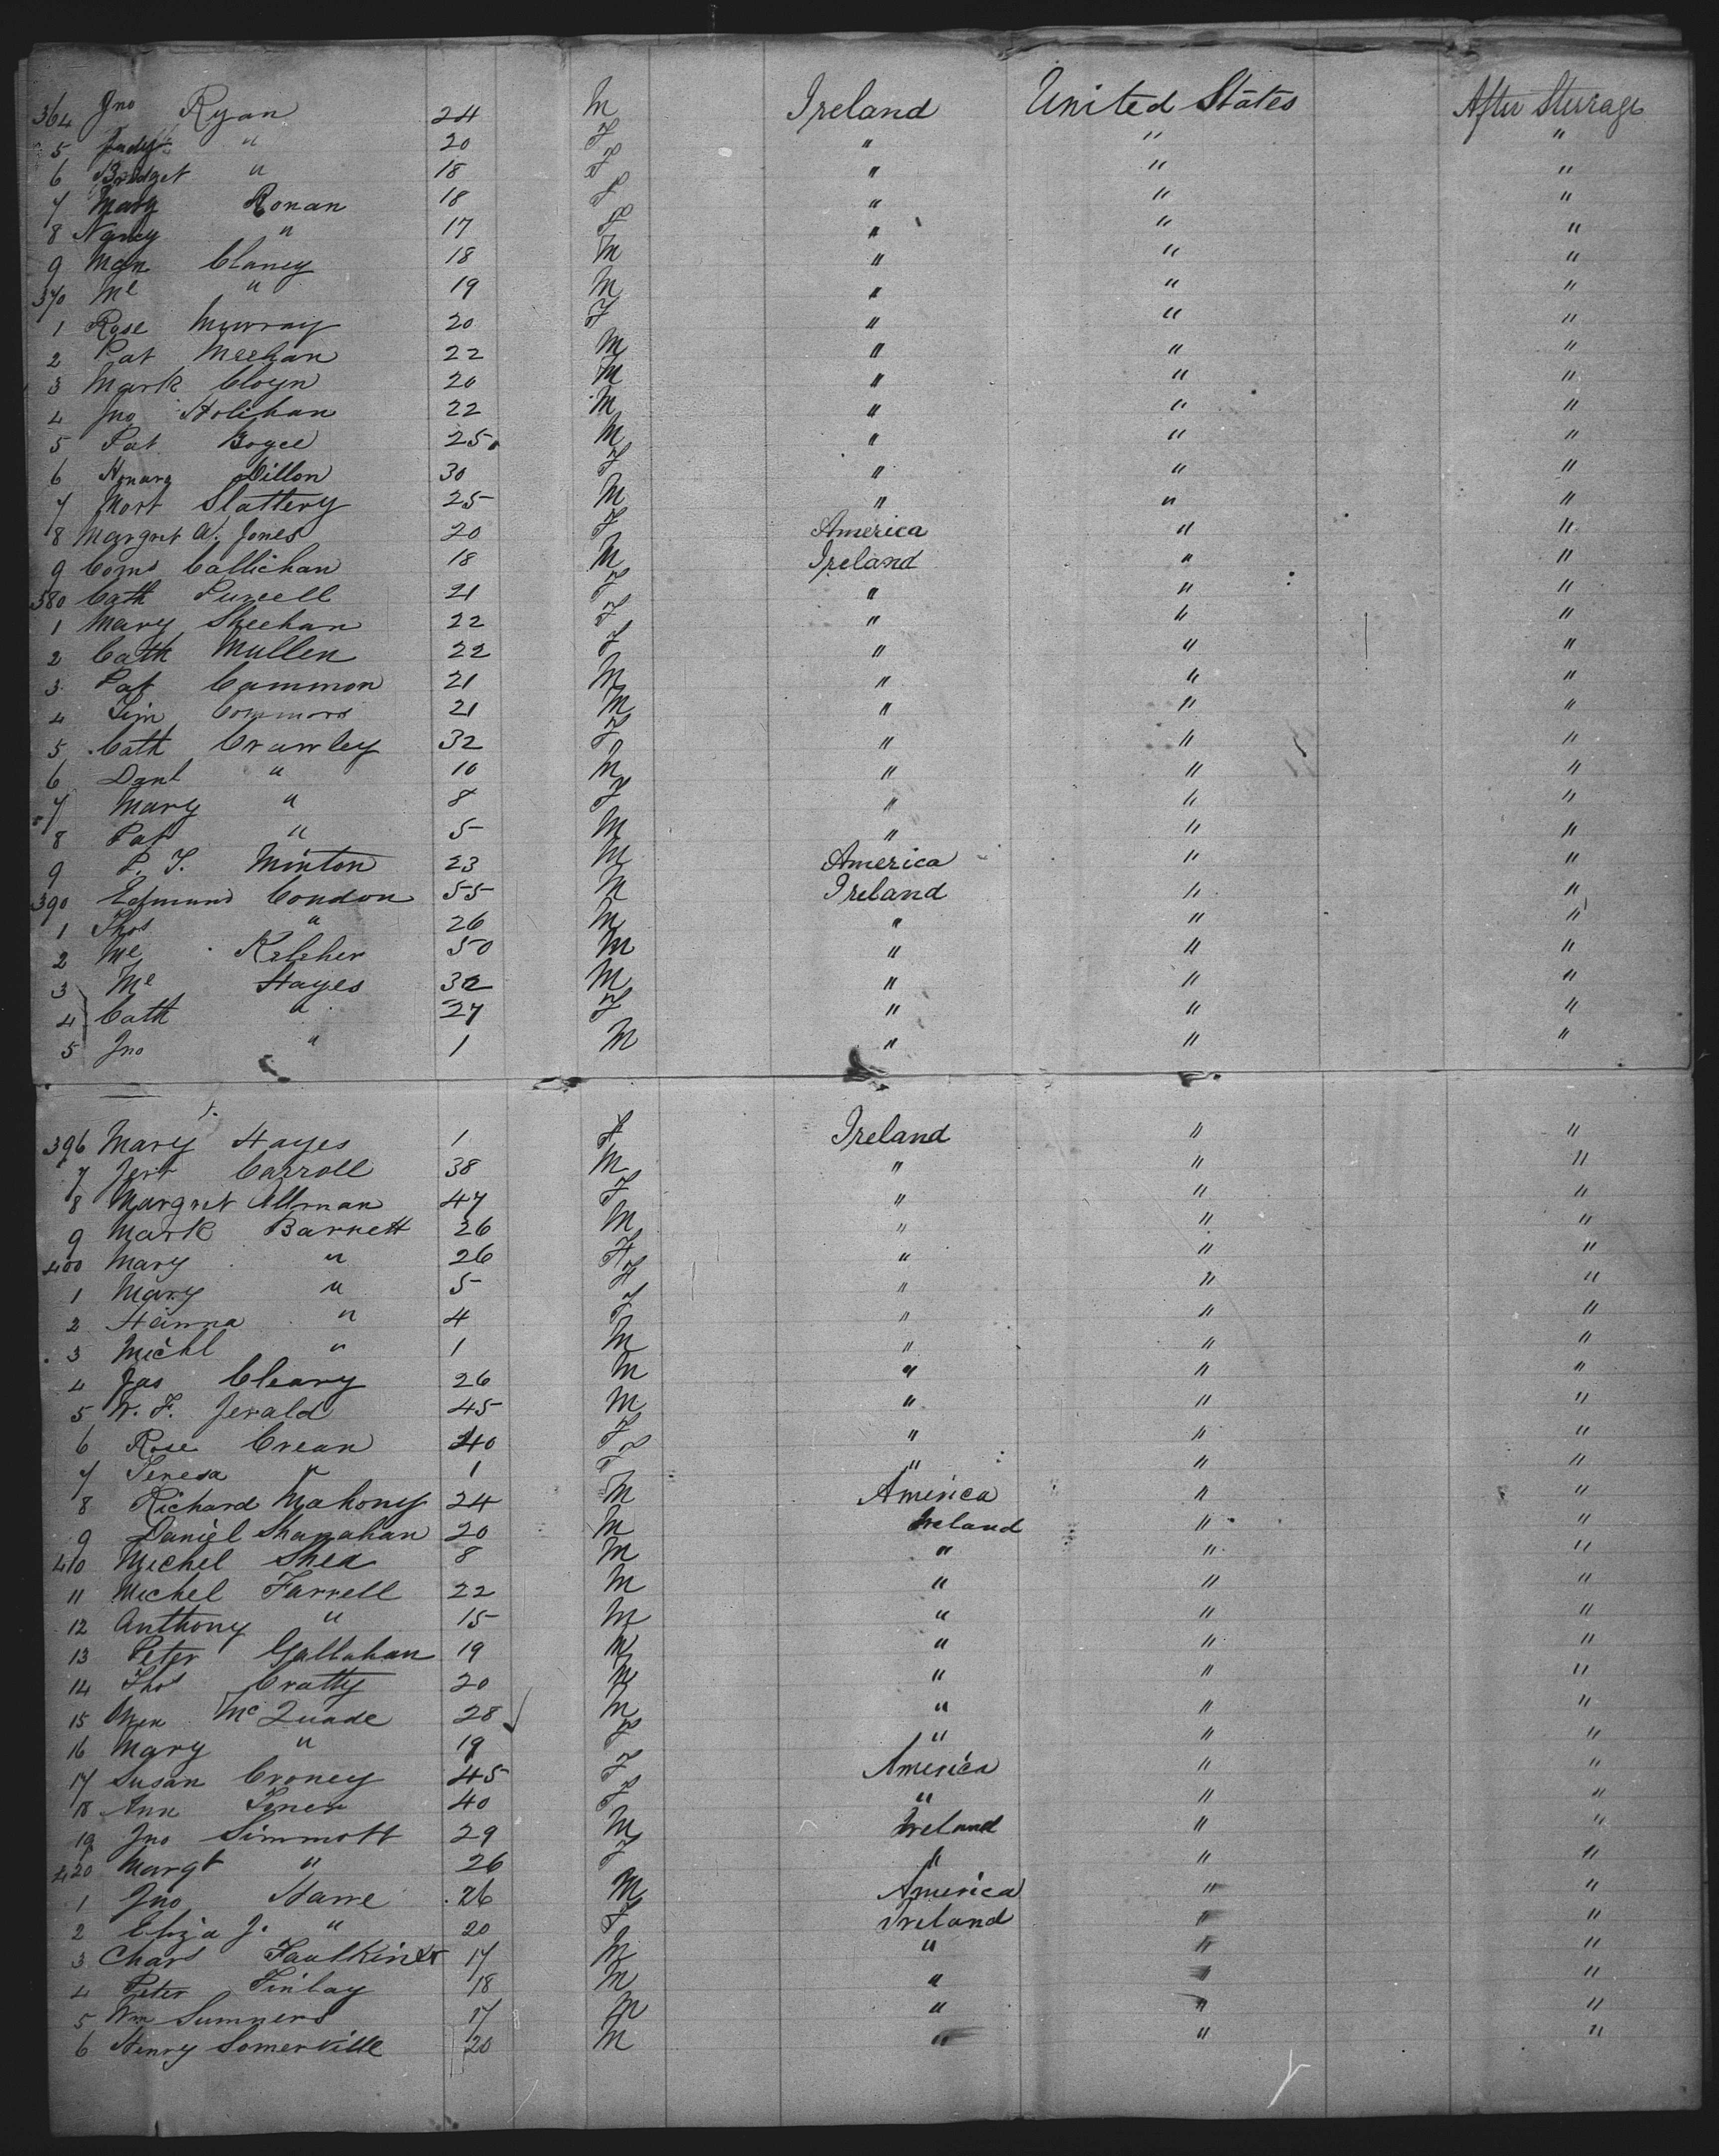 364 Jno Ryan 24 M Ireland United States After Steerage
5 Judy " 20 F " " "
6 Bridget " 18 F " " "
7 Mary Ronan 18 F " " "
8 Nancy " 17 F " " "
9 Clancy 18 M " " "
370 Ml " 19 M " " "
1 Rose Murray 20 F " " "
2 Pat Meehan 22 M " " "
3 Mark Cloyn 20 M " " "
4 Jno Holihan 22 M " " "
5 Pat Boyce 25 M " " "
6 Honara Dillon 30 F " " "
7 Mort Slattery 25 M " " "
8 Margret A. Jones 20 F America " "
9 Corns Callichan 18 M Ireland " "
380 Cath Purcell 21 F " " "
1 Mary Sheehan 22 F " " "
2 Cath Mullen 22 F " " "
3 Pat Cammon 21 M " " "
4 Tim Commons 21 M " " "
5 Cath Crawley 32 F " " "
6 Danl " 10 M " " "
7 Mary " 8 F " " "
8 Pat " 5 M " " "
9 P. T. Minton 23 M America " "
390 Edmund Condon 55 M Ireland " "
1 Thos " 26 M " " "
2 Ml Kelcher 50 M " " "
3 Ml Hayes 32 M " " "
4 Cath " 27 F " " "
5 Jno " 1 M " " "
396 Mary Hayes 1 F Ireland " "
7 Jerr Carroll 38 M " " "
8 Margret Allman 47 F " " "
9 Mark Barrett 26 M " " "
400 Mary " 26 F " " "
1 Mary " 5 F " " "
2 Hanna " 4 F " " "
3 Michl " 1 M " " "
4 Jas Cleary 26 M " " "
5 W. F. Jerald 45 M " " "
6 Rose Crean 40 F " " "
7 Teresa " 1 F " " "
8 Richard Mahony 24 M America " "
9 Daniel Shanahan 20 M Ireland " "
410 Michel Shea 8 M " " "
11 Michel Farrell 22 M " " "
12 Anthony " 15 M " " "
13 Peter Gallahan 19 M " " "
14 Thos Cratty 20 M " " "
15 Owen McQuade 28 M " " "
16 Mary " 19 F " " "
17 Susan Croney 45 F America " "
18 Ann 40 F " " "
19 Jno Simmott 29 M Ireland " "
420 Margt " 26 F " " "
1 Jno Harre 26 M America " "
2 Eliza J. " 20 F Ireland " "
3 Chars Faulkiner 17 M " " "
4 Peter Finlay 18 M " " "
5 Wm Sumners 17 M " " "
6 Henry Somerville 20 M " " "